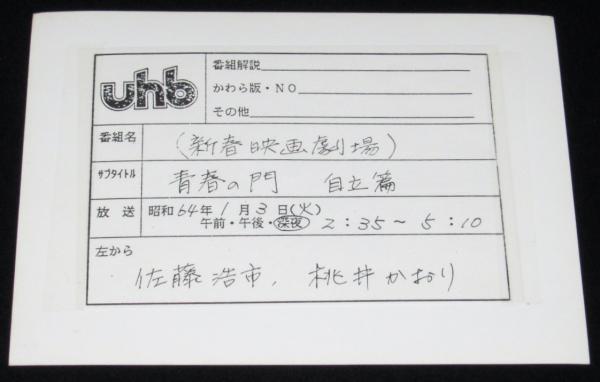 uhb
番組解説
かわら版・NO
その他
番組名 (新春映画劇場)
サブタイトル 青春の門 自立篇
放送 昭和64年1月3日(火)
午前・午後・深夜 2:35〜5:10
左から
佐藤浩市, 桃井かおり